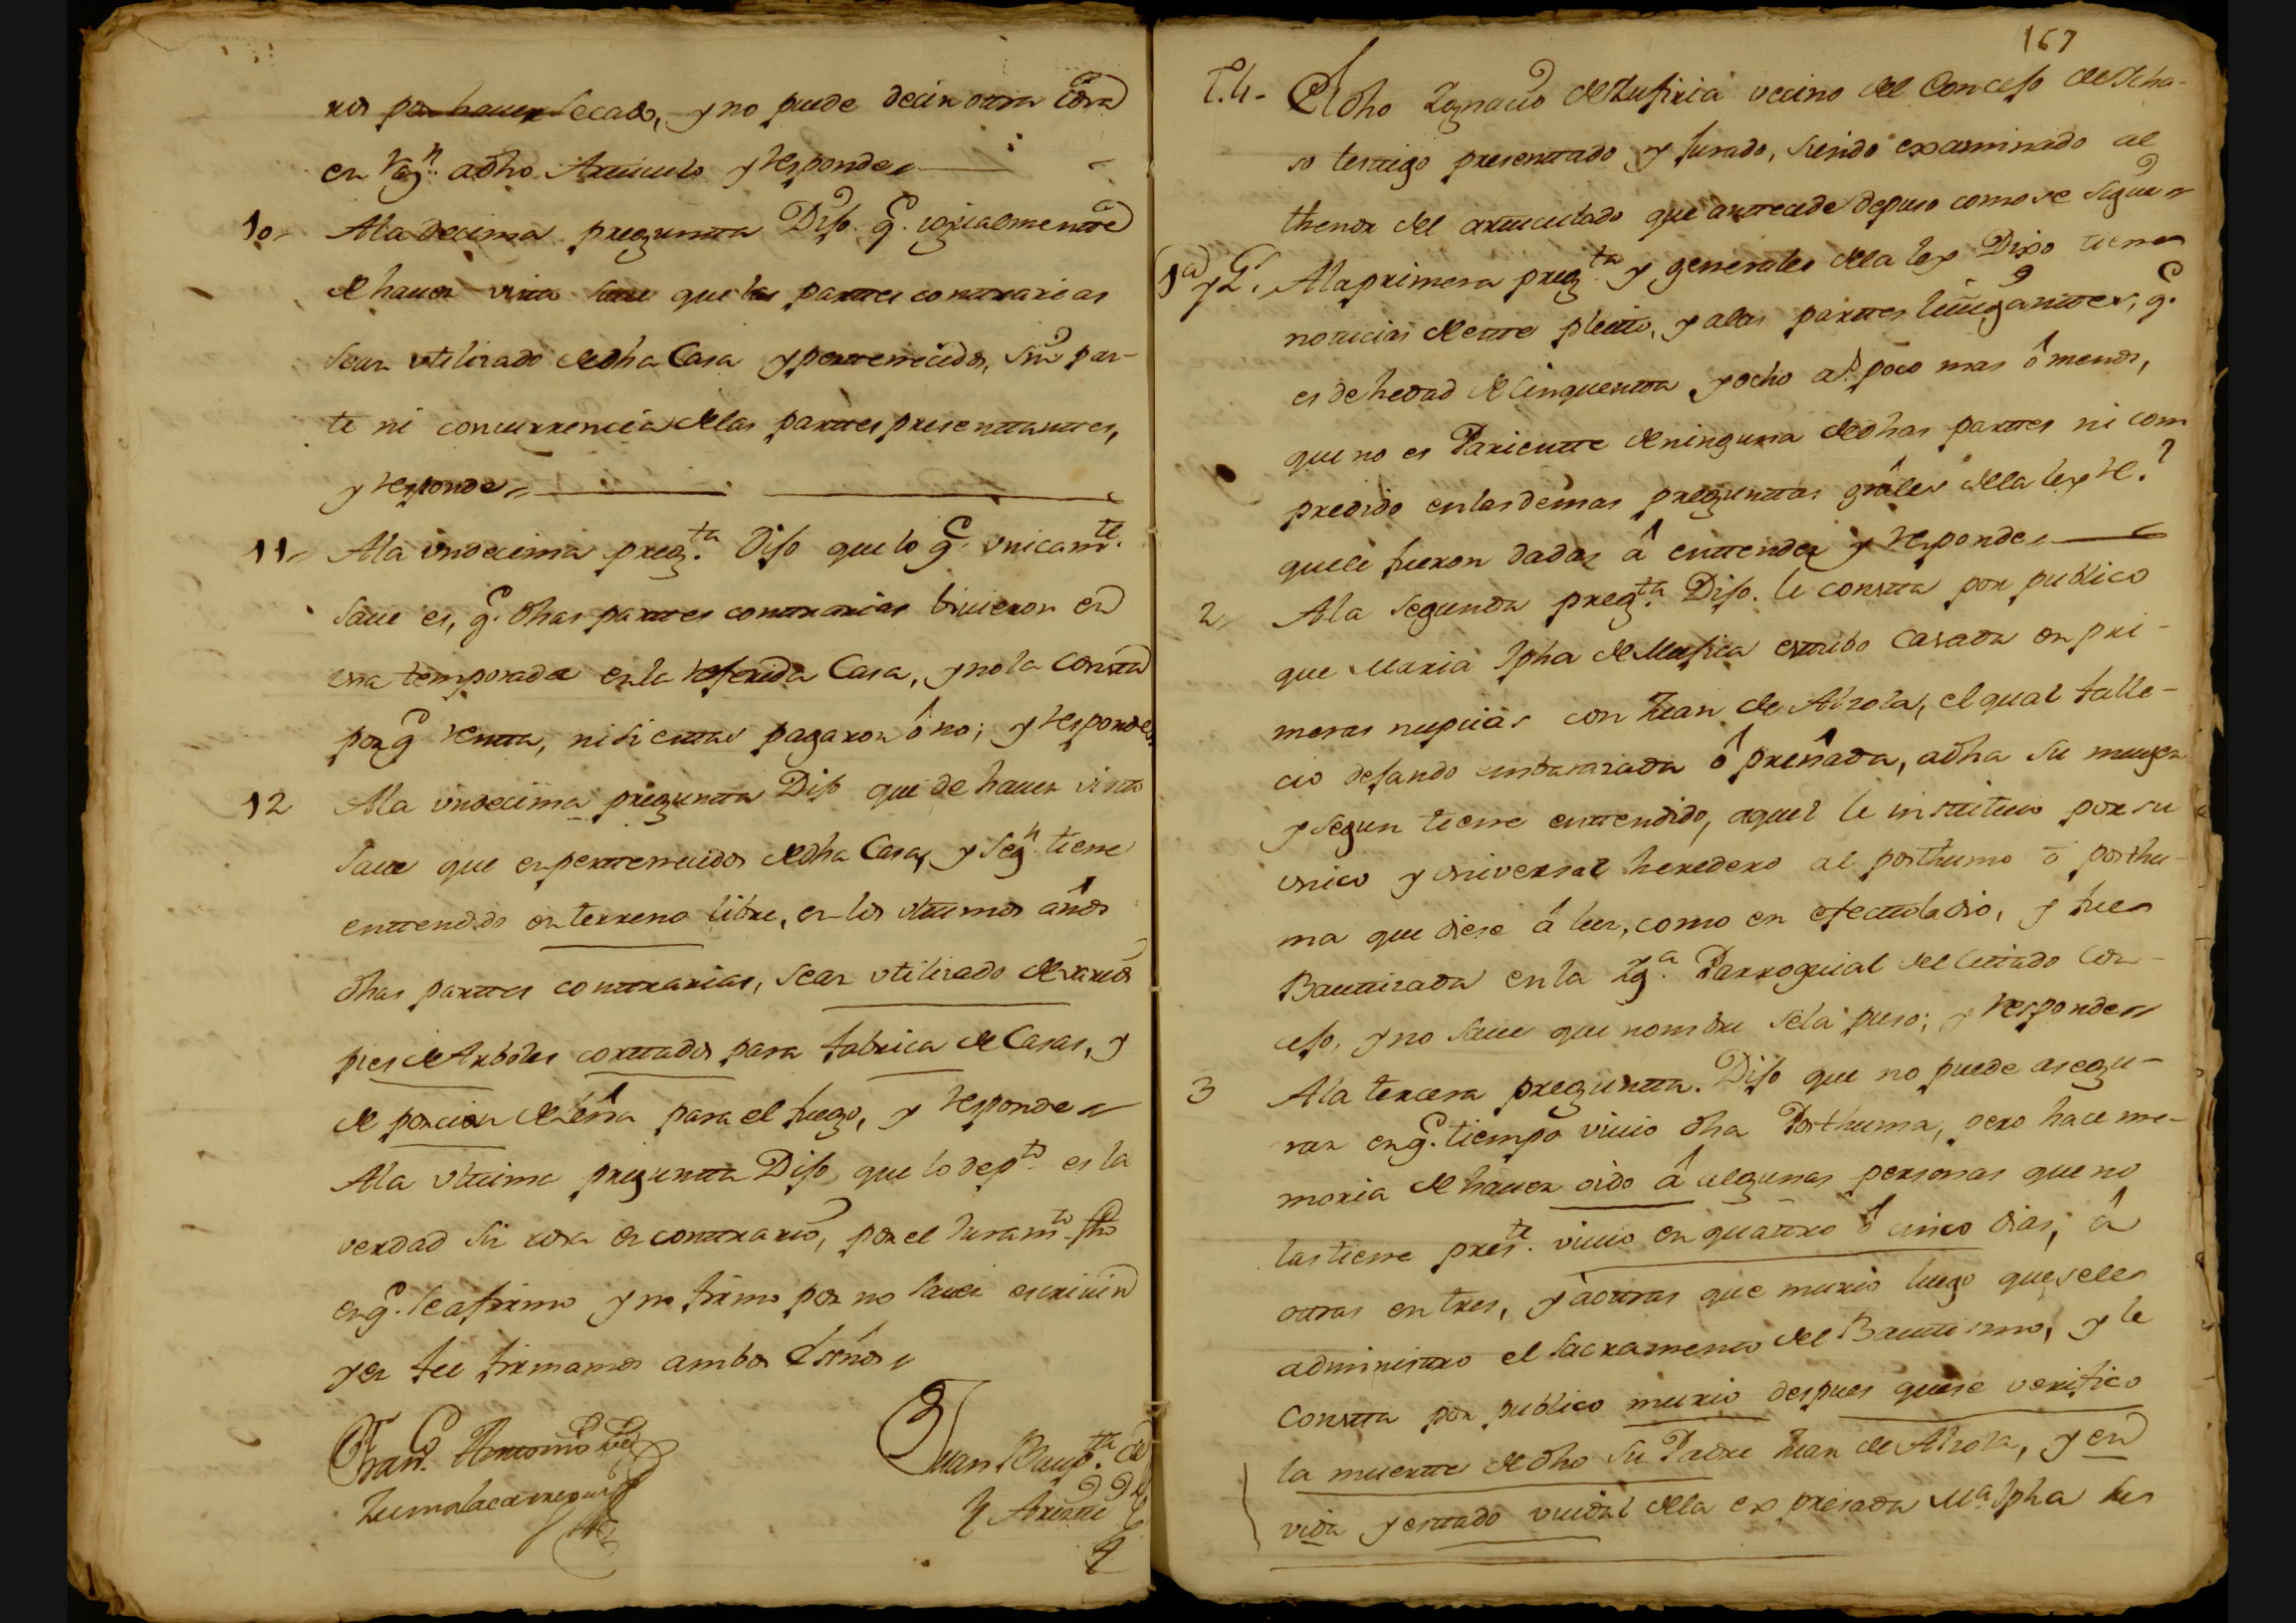 ros por haver secado, y no puede decir otra cosa
en rason adho Articulo y responde
10 Ala decima pregunta Dijo q.e igualmente
de haver visto save que las partes contrarias
sean utilizado dedha Casa y pertenecidos, sin par-
te ni concurrencia delas partes presentantes,
y responde
11 Ala undecima preg.ta Dijo que lo q.e unicam.te
save es, q.e dhas partes contrarias bivieron en
una temporada enla referida Casa, y no la consta
por q.e renta, ni si estas pagaron ô no; y responde
12 Ala undecima pregunta Dijo que de haver visto
save que en pertenecidos dedha Casa, y seg.n tiene
entendido en terreno libre, en los ultimos años
dhas partes contrarias, sean utilizado de varios
pies de Arboles cortados para fabrica de Casas, y
de porcion de leña para el fuego, y responde
Ala ultima pregunta Dijo que lo dep.to es la
verdad sin cosa en contrario, por el juram.to fho
en q.e se afirmo y no firmo por no saver escrivir
y en fee firmamos ambos Essnos
Fran.co Antonio de Juan Baup.ta de
Zumalacarregui Y Arizti
167
T.4- El dho Ygnacio de Zufiria vecino del Concejo de Icha-
so testigo presentado y jurado, siendo examinado al
thenor del articulado que antecede depuso como se sigue
1a y G.s Ala primera preg.ta y generales dela ley Dixo tiene
noticias de este pleito, y alas partes litigantes, q.e
es de hedad de cinquenta y ocho a.s poco mas ô menos,
que no es Pariente de ninguna dedhas partes ni com
predido en las demas preguntas grâles dela ley R.l
que le fueron dadas â entender y responde
2 Ala segunda preg.ta Dijo. le consta por publico
que Maria Jpha de Mujica estubo Casada en pri-
meras nupcias con Juan de Alzola, el qual falle-
cio dejando embarazada ô preñada, adha su muger
y segun tiene entendido, aquel le instituio por su
unico y universal heredero al posthumo ô posthu-
ma que diese â luz, como en efecto la dio, y fue
Bautizada en la Yg.a Parroquial del citado Con-
cejo, y no save que nombre sela puso; y responde
3 Ala tercera pregunta. Dijo que no puede asegu-
rar en q.e tiempo vivio dha Posthuma, pero hace me-
moria de haver oido â algunas personas que no
las tiene pres.te vivio en quatro ô cinco dias, â
otras en tres, y â otras que murio luego que sele
administro el Sacramento del Bautismo, y le
Consta por publico murio despues que se verifico
la muerte dedho su Padre Juan de Alzola, y en
vida y estado viudal dela expresada M.a Jpha su